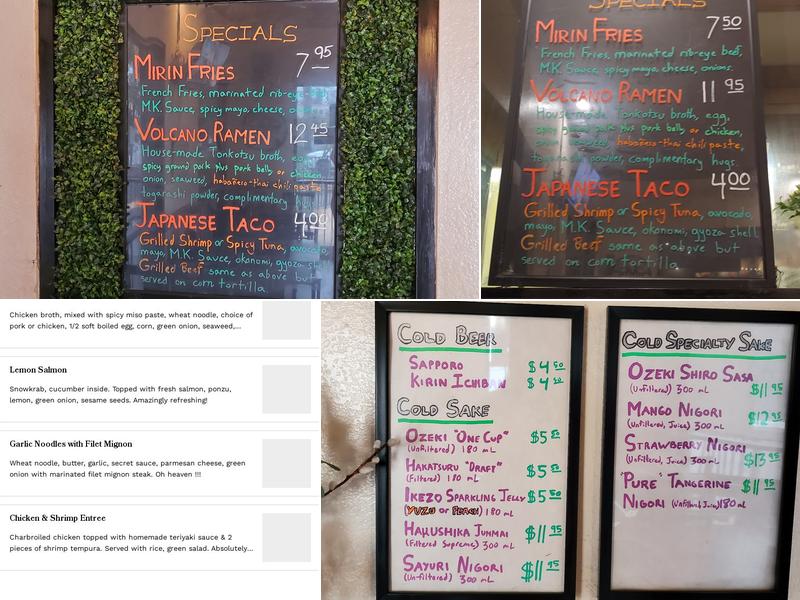 SPECIALS
MIRIN FRIES 7.95
French Fries, marinated rib-eye
M.K. Sauce, spicy mayo, cheese,
VOLCANO RAMEN 12.45
House-made Tonkotsu broth, egg,
spicy ground pork plus pork belly or chicken,
onion, seaweed, habañero-thai chili paste,
togarashi powder, complimentary hugs.
JAPANESE TACO 4.00
Grilled Shrimp or Spicy Tuna, avocado,
mayo, M.K. Sauce, okonomi, gyoza shell
Grilled Beef same as above but
served on corn tortilla.
SPECIALS
MIRIN FRIES 7.50
French Fries, marinated rib-eye beef,
M.K. Sauce, spicy mayo, cheese, onions.
VOLCANO RAMEN 11.95
House-made Tonkotsu broth, egg,
spicy ground pork plus pork belly or chicken,
onion, seaweed, habañero-thai chili paste,
togarashi powder, complimentary hugs.
JAPANESE TACO 4.00
Grilled Shrimp or Spicy Tuna, avocado,
mayo, M.K. Sauce, okonomi, gyoza shell
Grilled Beef same as above but
served on corn tortilla.
Chicken broth, mixed with spicy miso paste, wheat noodle, choice of
pork or chicken, 1/2 soft boiled egg, corn, green onion, seaweed,...
Lemon Salmon
Snowkrab, cucumber inside. Topped with fresh salmon, ponzu,
lemon, green onion, sesame seeds. Amazingly refreshing!
Garlic Noodles with Filet Mignon
Wheat noodle, butter, garlic, secret sauce, parmesan cheese, green
onion with marinated filet mignon steak. Oh heaven !!!
Chicken & Shrimp Entree
Charbroiled chicken topped with homemade teriyaki sauce & 2
pieces of shrimp tempura. Served with rice, green salad. Absolutely...
COLD BEER
SAPPORO $4.50
KIRIN ICHIBAN $4.50
COLD SAKE
OZEKI "ONE CUP" $5.50
(Unfiltered) 180 mL
HAKATSURU "DRAFT" $5.50
(Filtered) 180 mL
IKEZO SPARKLING JELLY $5.50
(YUZU or PEACH) 180 mL
HAKUSHIKA JUNMAI $11.95
(Filtered Supreme) 300 mL
SAYURI NIGORI $11.95
(Un-filtered) 300 mL
COLD SPECIALTY SAKE
OZEKI SHIRO SASA
(Unfiltered) 300 mL $11.95
MANGO NIGORI $12.95
(Unfiltered, Juice) 300 mL
STRAWBERRY NIGORI
(Unfiltered, Juice) 300 mL $13.95
"PURE" TANGERINE $11.95
NIGORI (Unfiltered, Juice) 180 mL